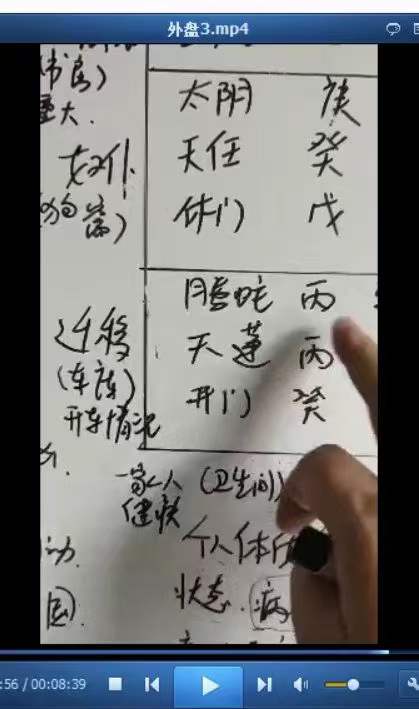 外盘3.mp4
书房)
太阴 庚
重大.
奴仆 天任 癸
(狗窝) 休门 戊
螣蛇 丙
迁移 天蓬 丙
(车库)
开车情况 开门 癸
一家人 (卫生间)
健快
动. 个人体
国). 状态. 病
:56 / 00:08:39